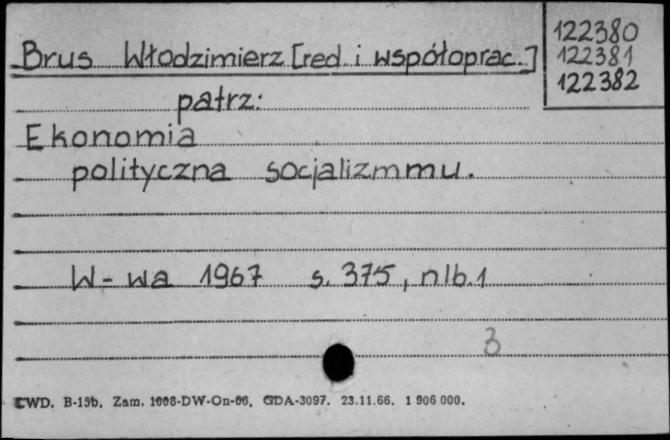 Brus Włodzimierz [red. i współoprac.]
122380
122381
122382
patrz:
Ekonomia
polityczna socjalizmmu.
W-wa 1967 s. 375, nlb.1
3
CWD. B-15b. Zam. 1668-DW-On-66. GDA-3097. 23.11.66. 1 906 000.